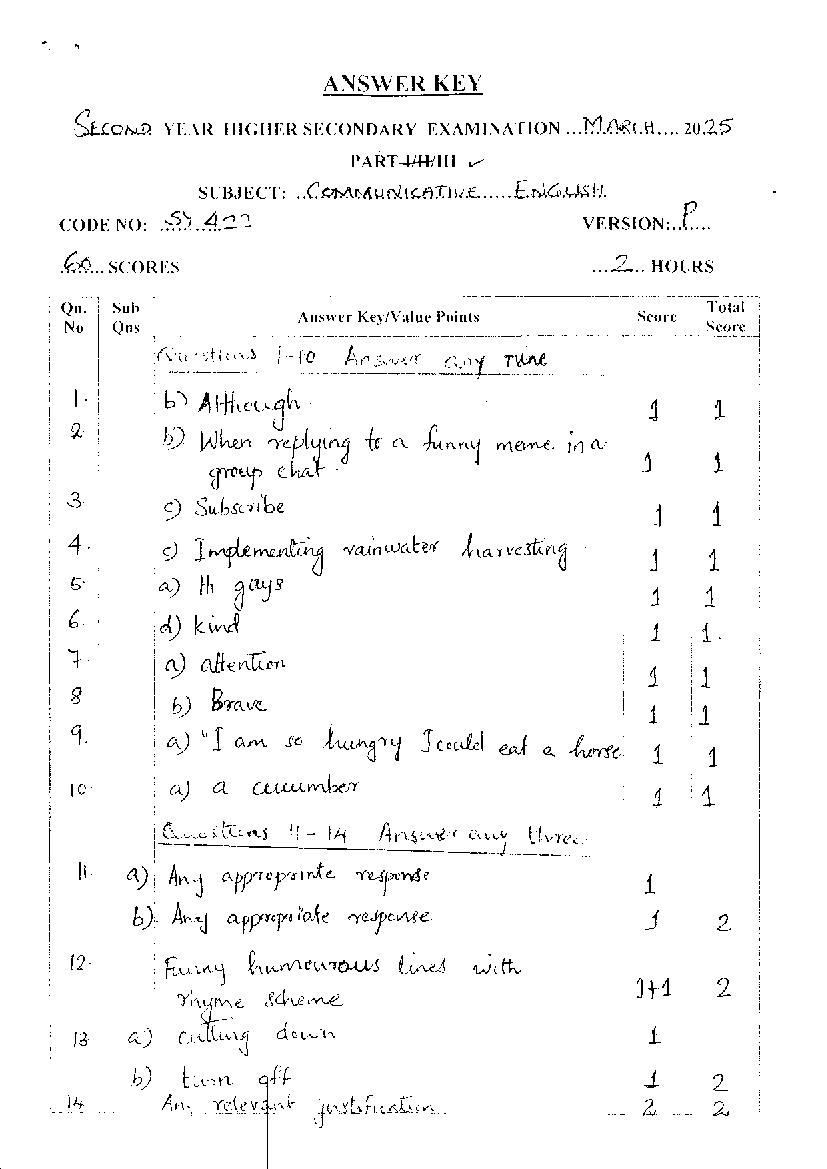 ANSWER KEY
SECOND YEAR HIGHER SECONDARY EXAMINATION ...MARCH.... 2025
PART I/II/III ✓
SUBJECT: ..COMMUNICATIVE......ENGLISH
CODE NO: ..SY 422 VERSION:..P....
60... SCORES ...2... HOURS
Qn. No Sub Qns Answer Key/Value Points Score Total Score
Questions 1-10 Answer any nine
1. b) Although. 1 1
2. b) When replying to a funny meme in a
group chat. 1 1
3. c) Subscribe 1 1
4. c) Implementing rainwater harvesting 1 1
5. a) Hi guys 1 1
6. d) kind 1 1.
7. a) attention 1 1
8 b) Brave 1 1
9. a) "I am so hungry I could eat a horse 1 1
10 a) a cucumber 1 1
Questions 11-14 Answer any three.
11. a) Any appropriate response 1
b) Any appropriate response 1 2
12. Funny humourous lines with
rhyme scheme 1+1 2
13 a) cutting down 1
b) turn off 1 2
14 Any relevant justification 2 2